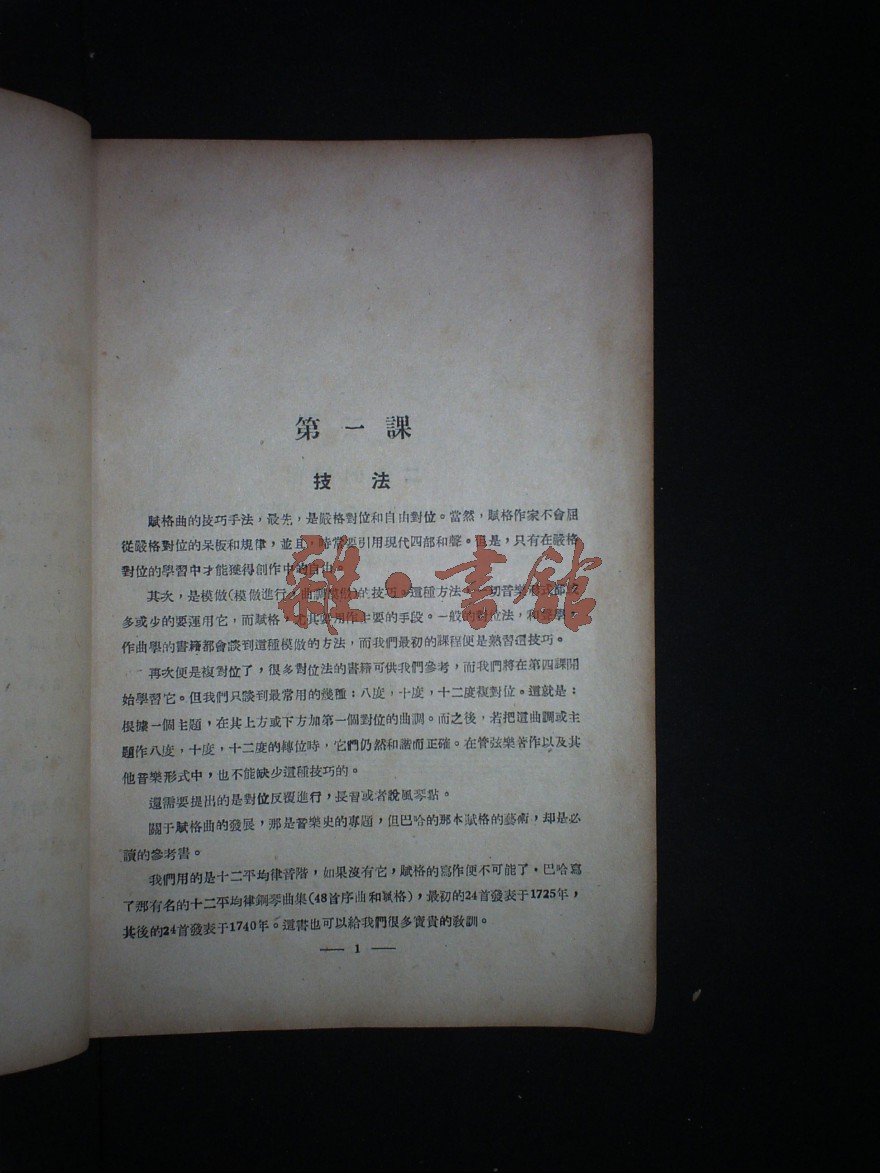 第一課
技法
賦格曲的技巧手法，最先，是嚴格對位和自由對位。當然，賦格作家不會屈
從嚴格對位的呆板和規律，並且，時常要引用現代四部和聲。但是，只有在嚴格
對位的學習中才能獲得創作中的自由。
其次，是模倣（模倣進行，曲調模倣）的技巧。這種方法，一切音樂形式都或
多或少的要運用它，而賦格，尤其要用作主要的手段。一般的對位法，和聲學，
作曲學的書籍都會談到這種模倣的方法，而我們最初的課程便是熟習這技巧。
再次便是複對位了，很多對位法的書籍可供我們參考，而我們將在第四課開
始學習它。但我們只談到最常用的幾種：八度，十度，十二度複對位。這就是：
根據一個主題，在其上方或下方加第一個對位的曲調。而之後，若把這曲調或主
題作八度，十度，十二度的轉位時，它們仍然和諧而正確。在管弦樂著作以及其
他音樂形式中，也不能缺少這種技巧的。
還需要提出的是對位反覆進行，長習或者說風琴點。
關于賦格曲的發展，那是音樂史的專題，但巴哈的那本賦格的藝術，却是必
讀的參考書。
我們用的是十二平均律音階，如果沒有它，賦格的寫作便不可能了。巴哈寫
了那有名的十二平均律鋼琴曲集（48首序曲和賦格），最初的24首發表于1725年，
其後的24首發表于1740年。這書也可以給我們很多寶貴的教訓。
— 1 —
雜·書館